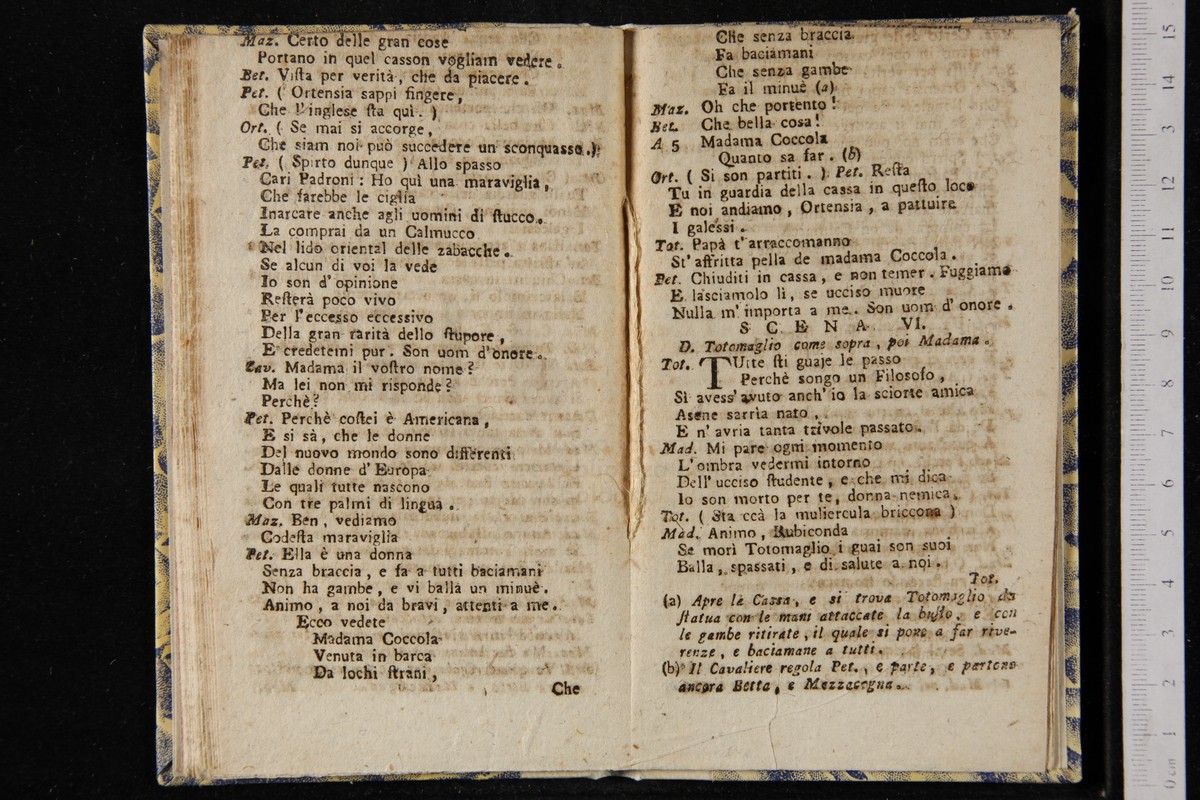 Maz. Certo delle gran cose
Portano in quel casson vogliam vedere.
Bet. Viſta per verità, che da piacere.
Pet. ( Ortensia sappi fingere,
Che l'inglese ſta quì. )
Ort. ( Se mai si accorge,
Che siam noi può succedere un sconquasso.)
Pet. ( Spirto dunque ) Allo spasso
Cari Padroni : Ho quì una maraviglia,
Che farebbe le ciglia
Inarcare anche agli uomini di ſtucco.
La comprai da un Calmucco
Nel lido oriental delle zabacche.
Se alcun di voi la vede
Io son d'opinione
Reſterà poco vivo
Per l'eccesso eccessivo
Della gran rarità dello ſtupore,
E credetemi pur. Son uom d'onore.
Cav. Madama il voſtro nome?
Ma lei non mi risponde?
Perchè?
Pet. Perchè coſtei è Americana,
E si sà, che le donne
Del nuovo mondo sono differenti
Dalle donne d'Europa
Le quali tutte nascono
Con tre palmi di lingua.
Maz. Ben, vediamo
Codeſta maraviglia
Pet. Ella è una donna
Senza braccia, e fa a tutti baciamani
Non ha gambe, e vi balla un minuè.
Animo, a noi da bravi, attenti a me.
Ecco vedete
Madama Coccola
Venuta in barca
Da lochi ſtrani,
Che
Che senza braccia
Fa baciamani
Che senza gambe
Fa il minuè (a)
Maz. Oh che portento!
Bet. Che bella cosa!
A 5 Madama Coccola
Quanto sa far. (b)
Ort. ( Si son partiti. ) Pet. Reſta
Tu in guardia della cassa in queſto loco
E noi andiamo, Ortensia, a pattuire
I galessi.
Tot. Papà t'arraccomanno
St'affritta pella de madama Coccola.
Pet. Chiuditi in cassa, e non temer. Fuggiamo
E lasciamolo lì, se ucciso muore
Nulla m'importa a me. Son uom d'onore.
SCENA VI.
D. Totomaglio come sopra, poi Madama.
Tot. TUtte ſti guaje le passo
Perchè songo un Filosofo,
Si avess'avuto anch'io la sciorte amica
Asene sarrìa nato,
E n'avria tanta trivole passato.
Mad. Mi pare ogni momento
L'ombra vedermi intorno
Dell'ucciso ſtudente, e che mi dica
Io son morto per te, donna nemica.
Tot. ( Sta ccà la muliercula briccona )
Mad. Animo, Rubiconda
Se morì Totomaglio i guai son suoi
Balla, spassati, e di salute a noi.
Tot.
(a) Apre la Cassa, e si trova Totomaglio da
ſtatua con le mani attaccate la buſto, e con
le gambe ritirate, il quale si pone a far rive-
renze, e baciamane a tutti.
(b) Il Cavaliere regola Pet., e parte, e partono
ancora Betta, e Mazzacogna.
15
14
13
12
11
10
9
8
7
6
5
4
3
2
1
0 cm